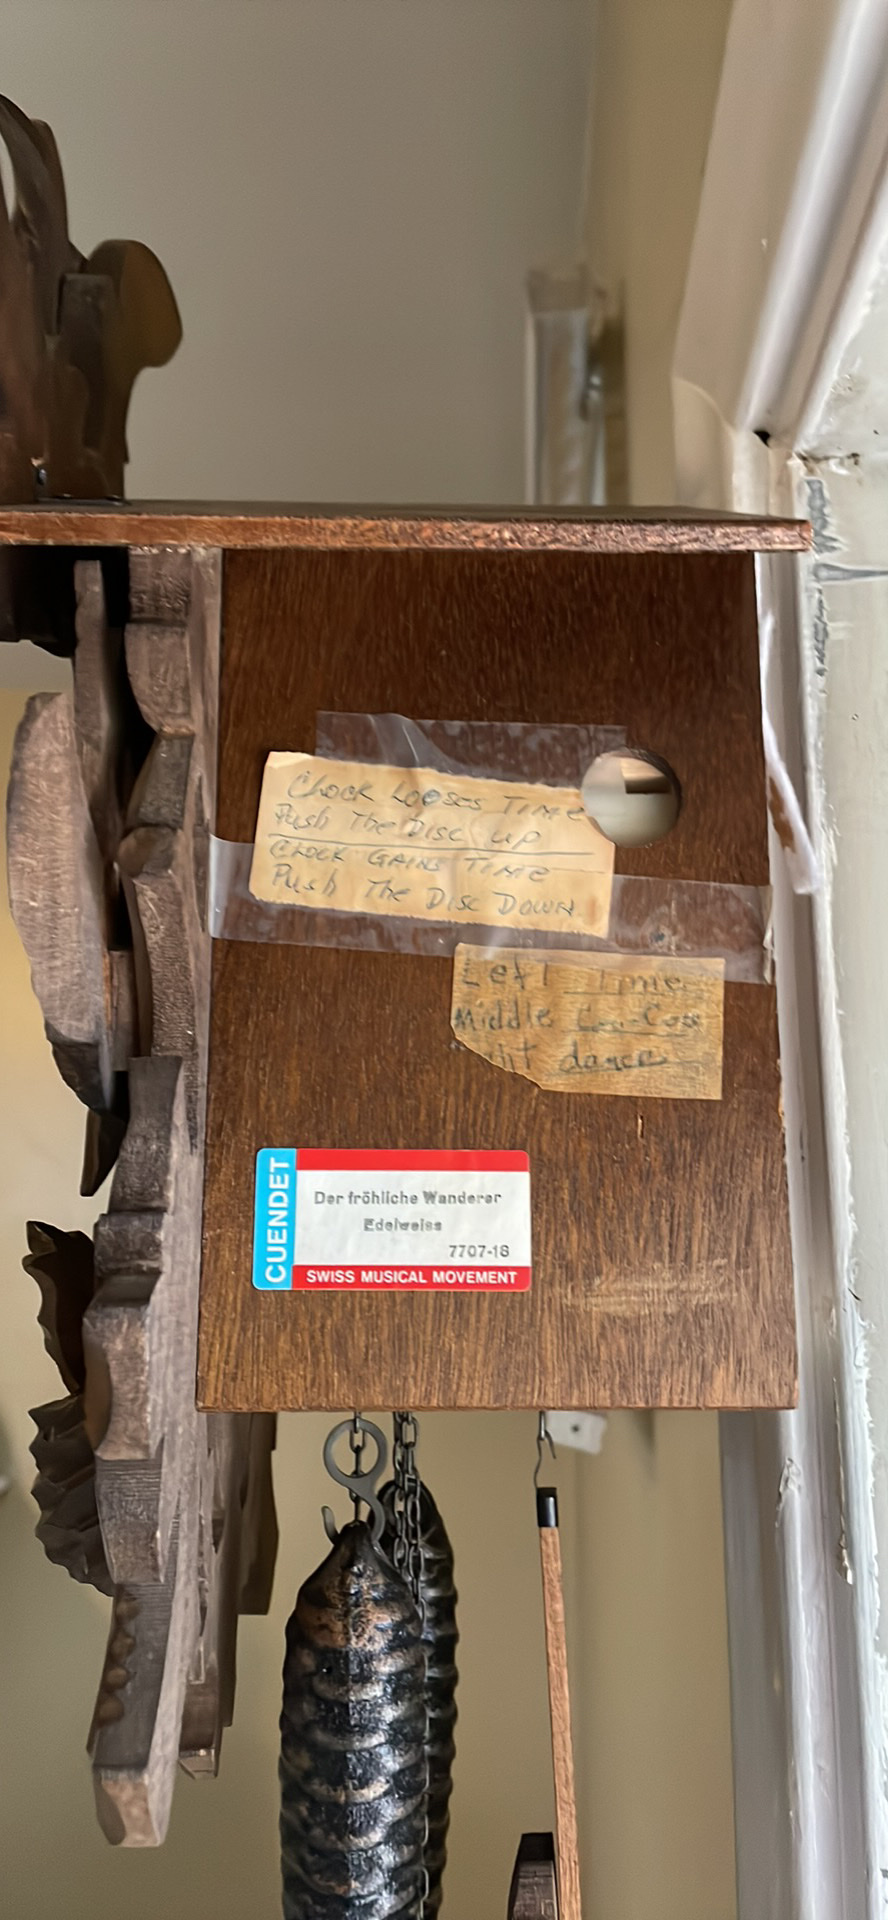 Clock Looses Time
Push The Disc up
Clock Gains Time
Push The Disc Down
Left Time
Middle Coo-Coo
dance
CUENDET
Der fröhliche Wanderer
Edelweiss
7707-18
SWISS MUSICAL MOVEMENT